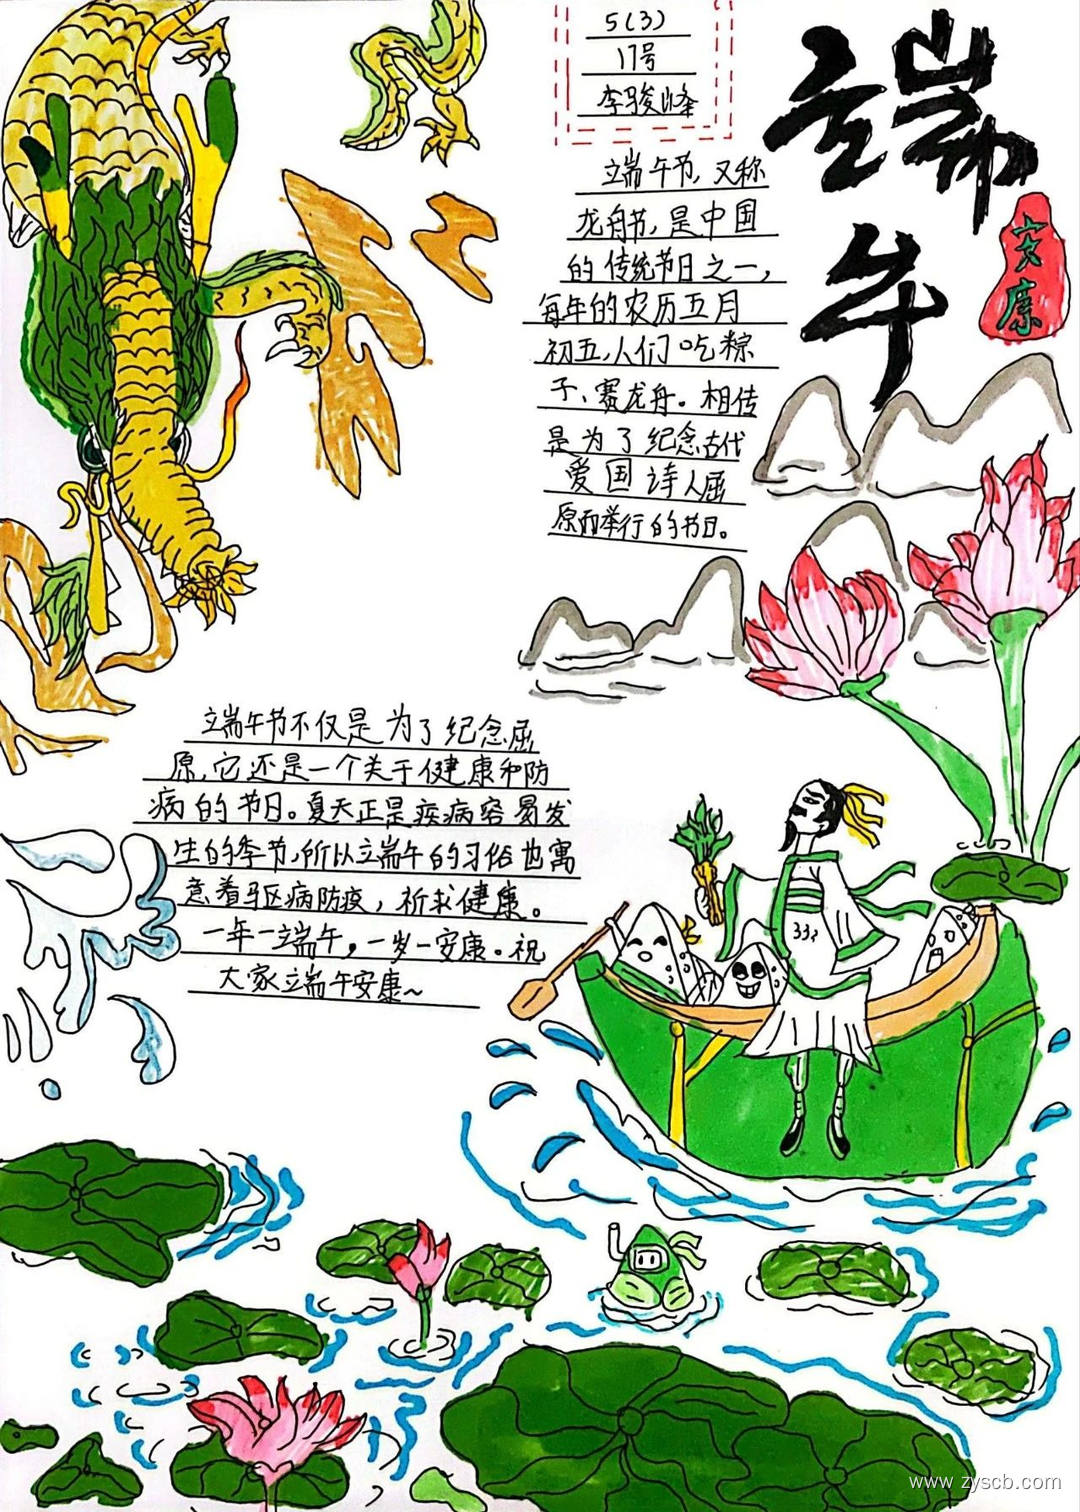 5(3)
17号
李骏峰
端午
安康
端午节,又称
龙舟节,是中国
的传统节日之一,
每年的农历五月
初五,人们吃粽
子、赛龙舟。相传
是为了纪念古代
爱国诗人屈
原而举行的节日。
端午节不仅是为了纪念屈
原,它还是一个关于健康和防
病的节日。夏天正是疾病容易发
生的季节,所以端午的习俗也寓
意着驱病防疫,祈求健康。
一年一端午,一岁一安康。祝
大家端午安康~
www.zyscb.com